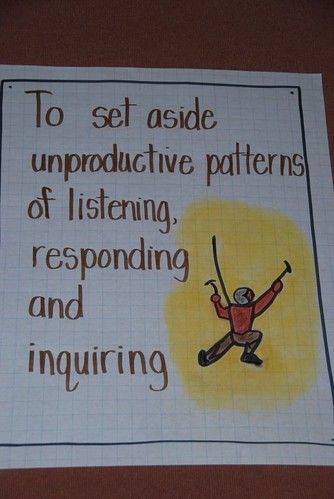 To set aside
unproductive patterns
of listening,
responding
and
inquiring